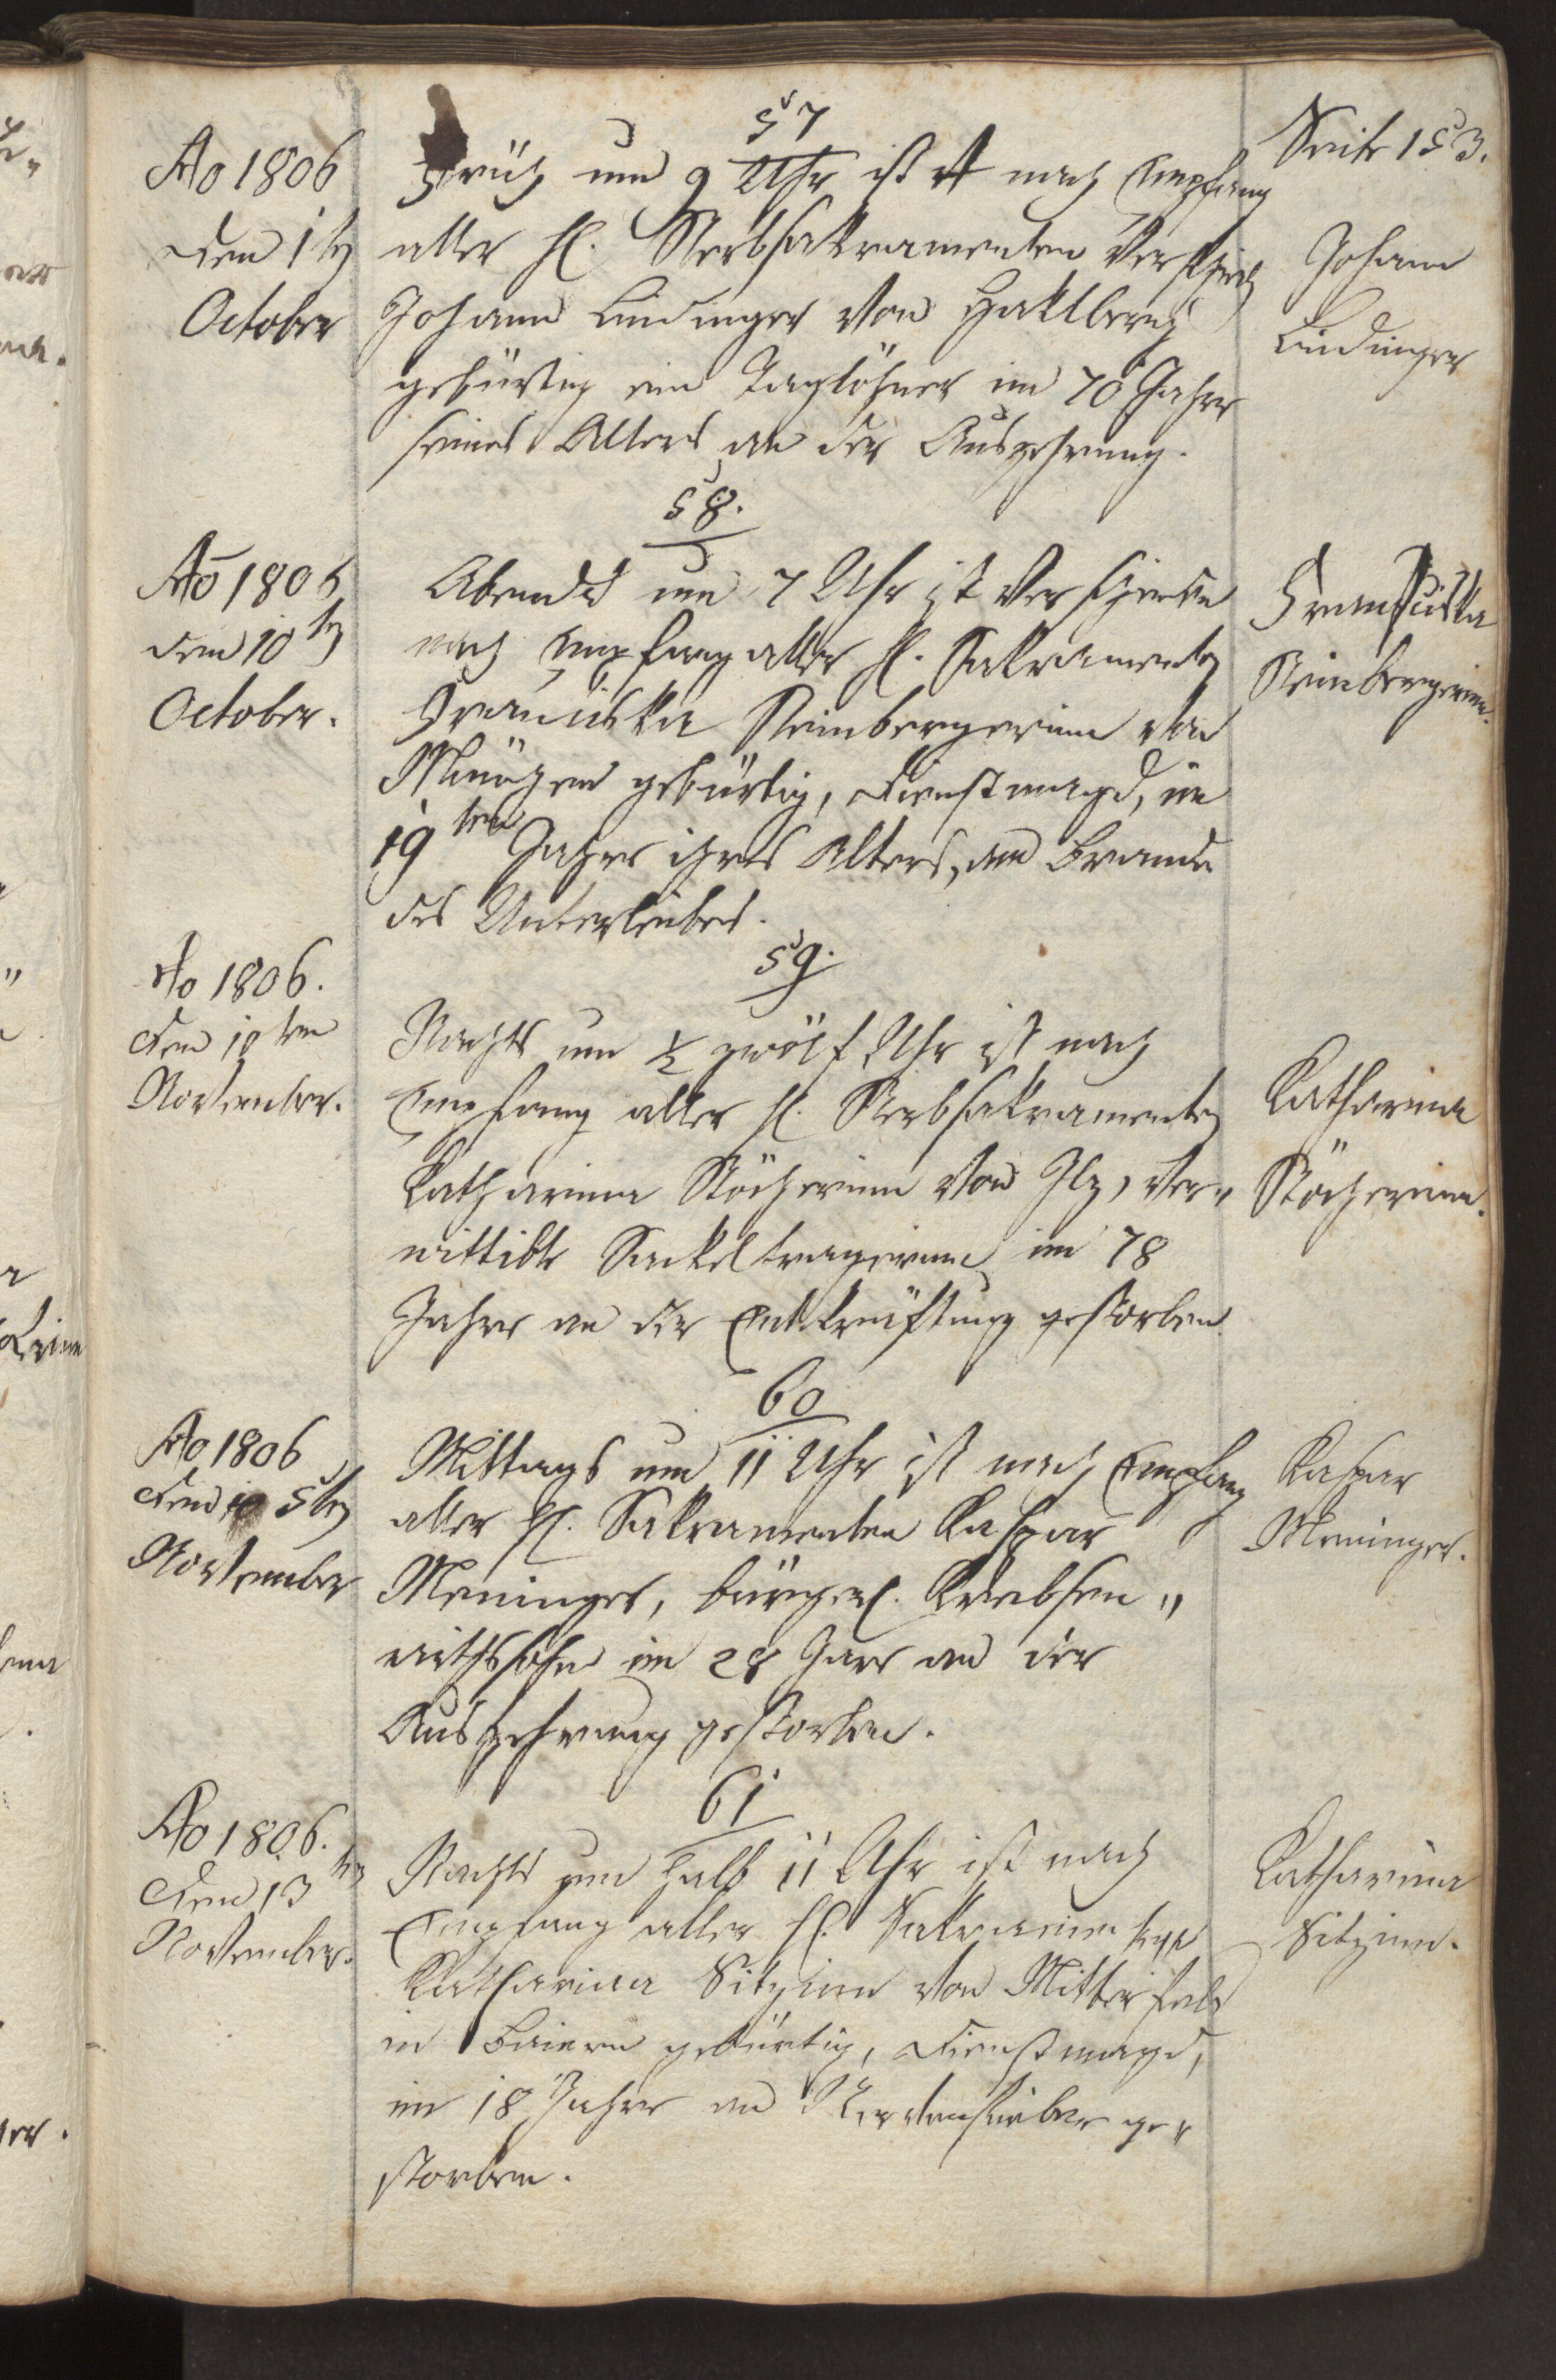 Seite 153.
57
Ao 1806
den 1tn
October
Früh um 9 Uhr ist nach Empfang
aller hl. Sterbsakramenten verschied
Johann Lindinger von Haklberg
gebürtig ein Taglöhner im 70 Jahre
seines Alters an der Auszehrung.
Johann
Lindinger
58.
Ao 1806
den 10tn
October.
Abends um 7 Uhr ist verschieden
nach Empfang aller hl. Sakramenten
Franziska Steinbergerinn von
gebürtig, Dienstmagd, im
19ten Jahre ihres Alters, am Brande
des Unterleibes.
Franziska
Steinbergerinn.
59.
Ao 1806.
den ten
November.
Nachts um ½ zwölf Uhr ist nach
Empfang aller hl. Sterbsakramenten
Katharina Stöcherinn von Ilz, ver„
wittibte Sackeltragerinn im 78
Jahre an der Entkräftung gestorben
Katharina
Stöcherinn.
60
Ao 1806
den 5tn
November
Mittags um 11 Uhr ist nach Empfang
aller hl. Sakramenten Kaspar
Meninger, bürgerl. Krebsen„
wirthssohn im 28 Jare an der
Auszehrung gestorben.
Kaspar
Meninger.
61
Ao 1806.
den 13tn
November.
Nachts um halb 11 Uhr ist nach
Empfang aller hl. Sakramenten
Katharina Sitzinn von Mitterfels
in Baiern gebürtig, Dienstmagd,
im 18 Jahre am Nervenfieber ge„
storben.
Katharina
Sitzinn.